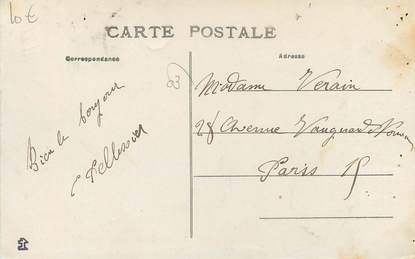 10€
CARTE POSTALE
Correspondance
Adresse
63
Bien le bonjour
E Pellissier
Madame Verain
28 Avenue
Paris 15